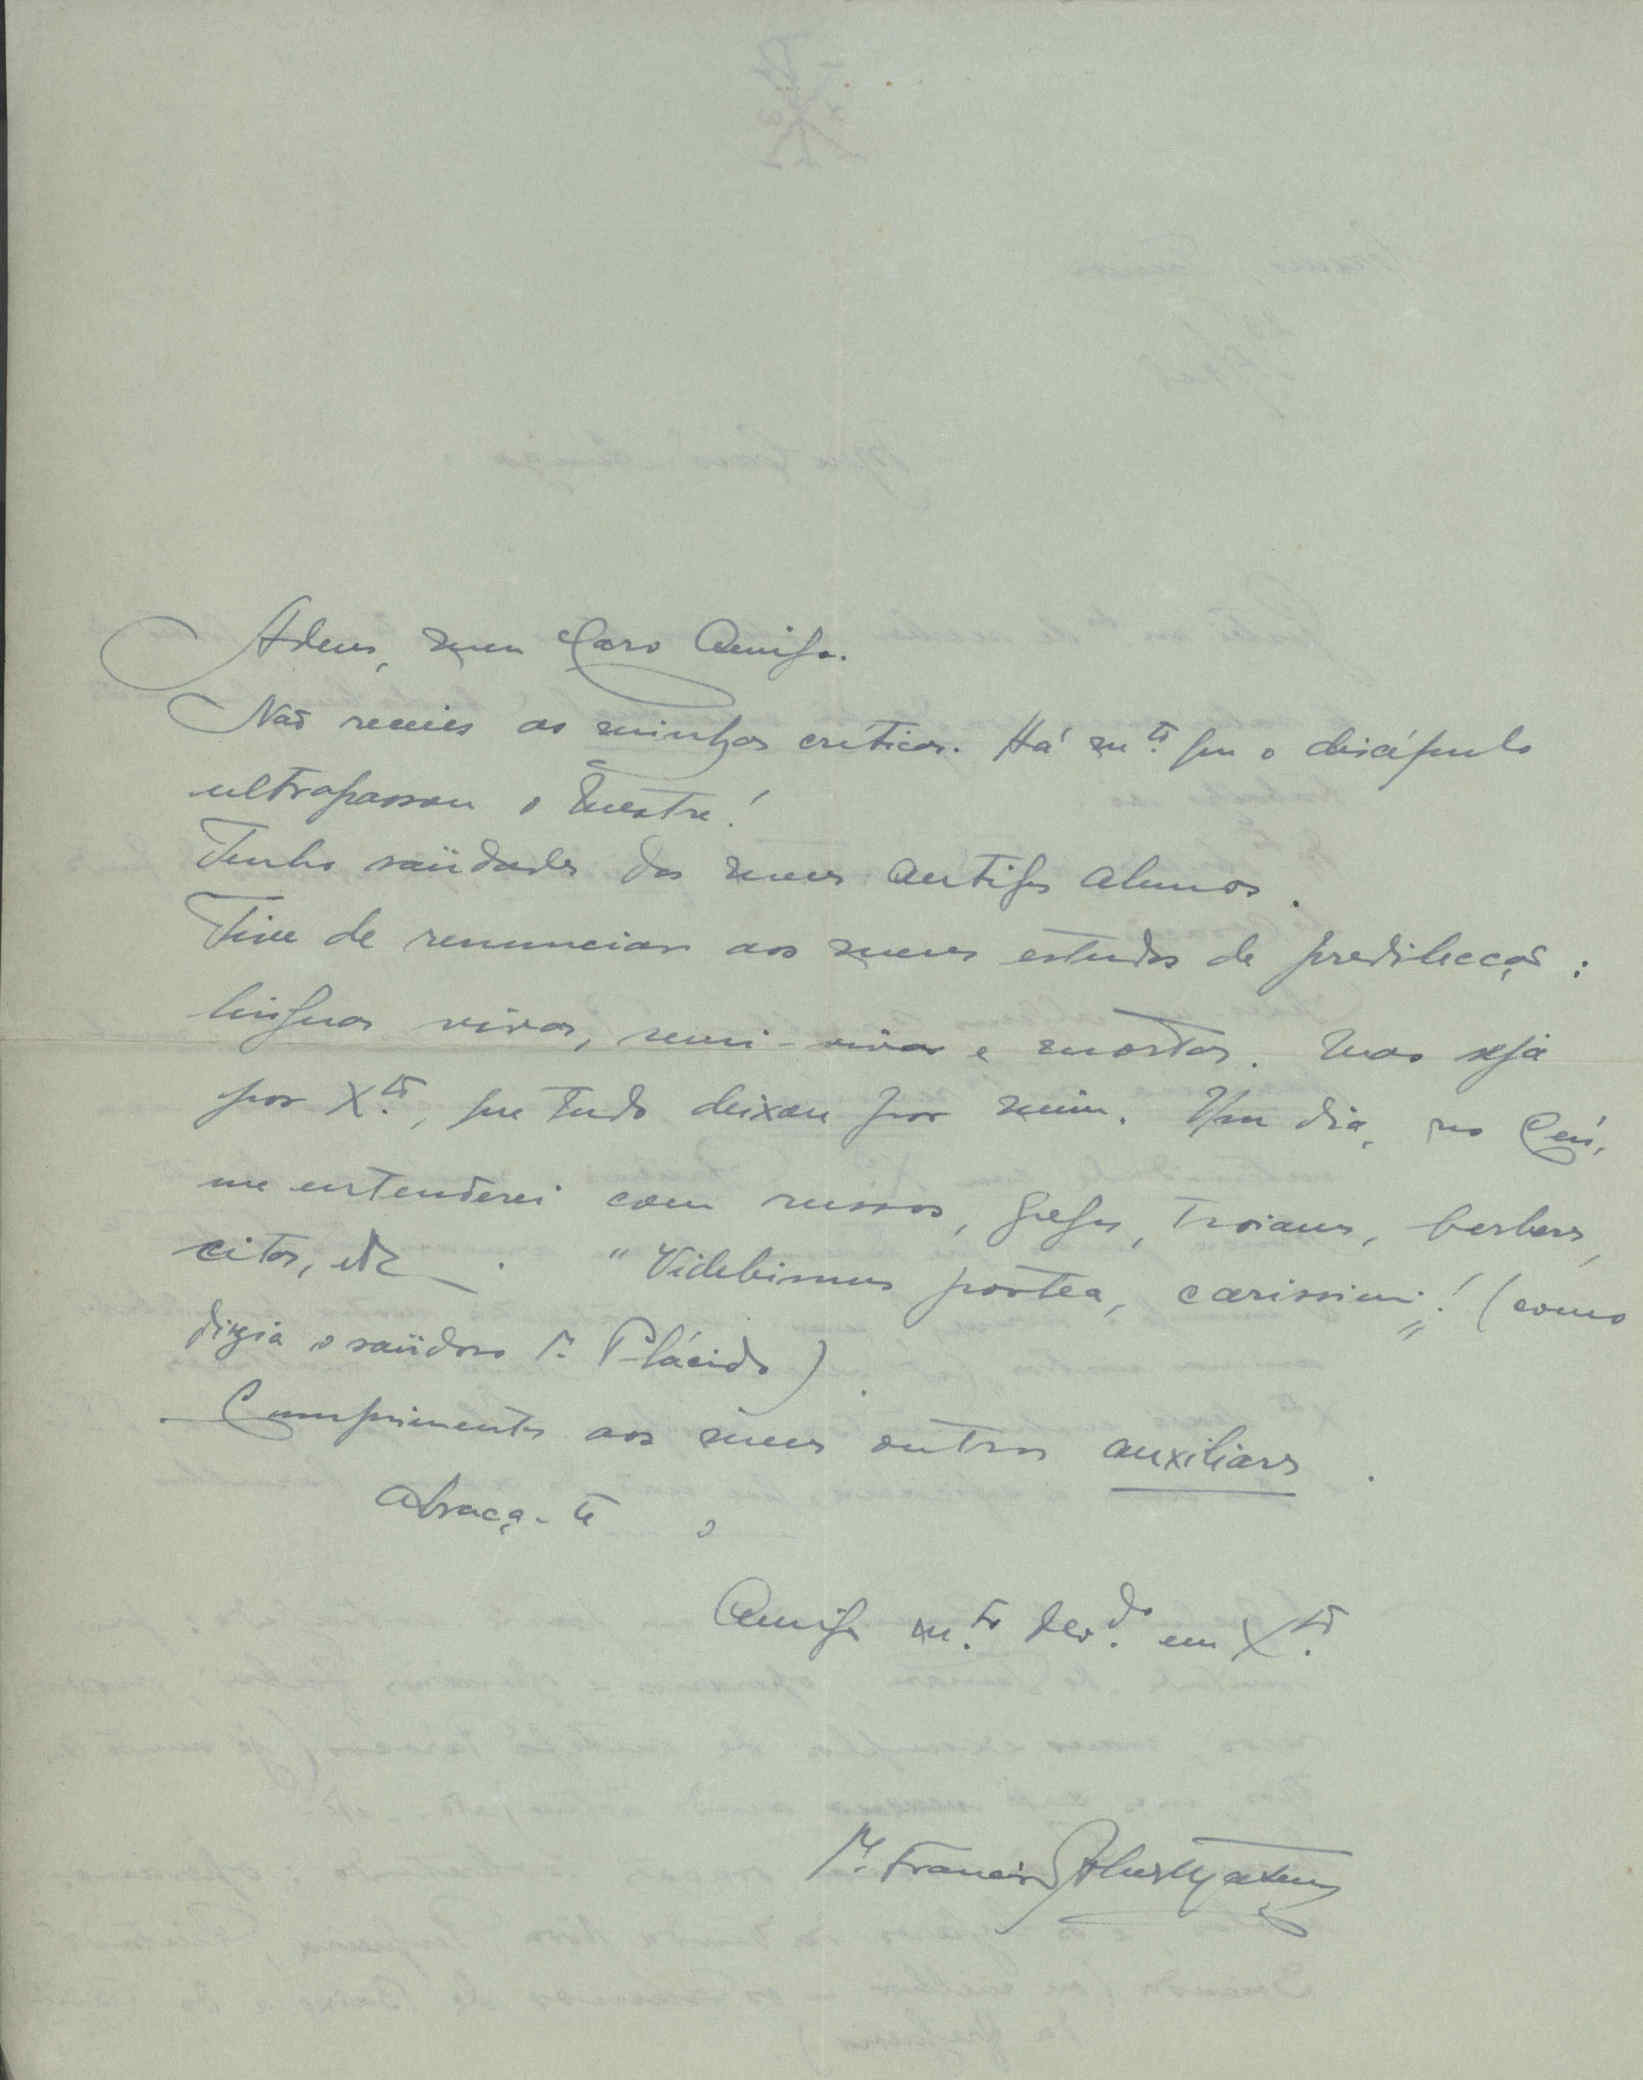 Adeus, meu Caro Amigo.
Não receies as minhas criticas. Há m.to que o discípulo
ultrapassou o Mestre!
Tenho saüdades dos meus antigos alunos.
Tive de renunciar aos meus estudos de predilecção:
linguas vivas, semi-vivas e mortas. Mas seja
por X.to, que tudo deixou por mim. Um dia, no Ceú,
me entenderei com russos, gregos, troianos, berberes,
citas, etc. "Videbimus postea, carissimi!" (como
dizia o saüdoso P. Plácido).
Cumprimentos aos meus outros auxiliares.
Abraça-te o
Amigo m.to dev.do em X.to
P. Francisco